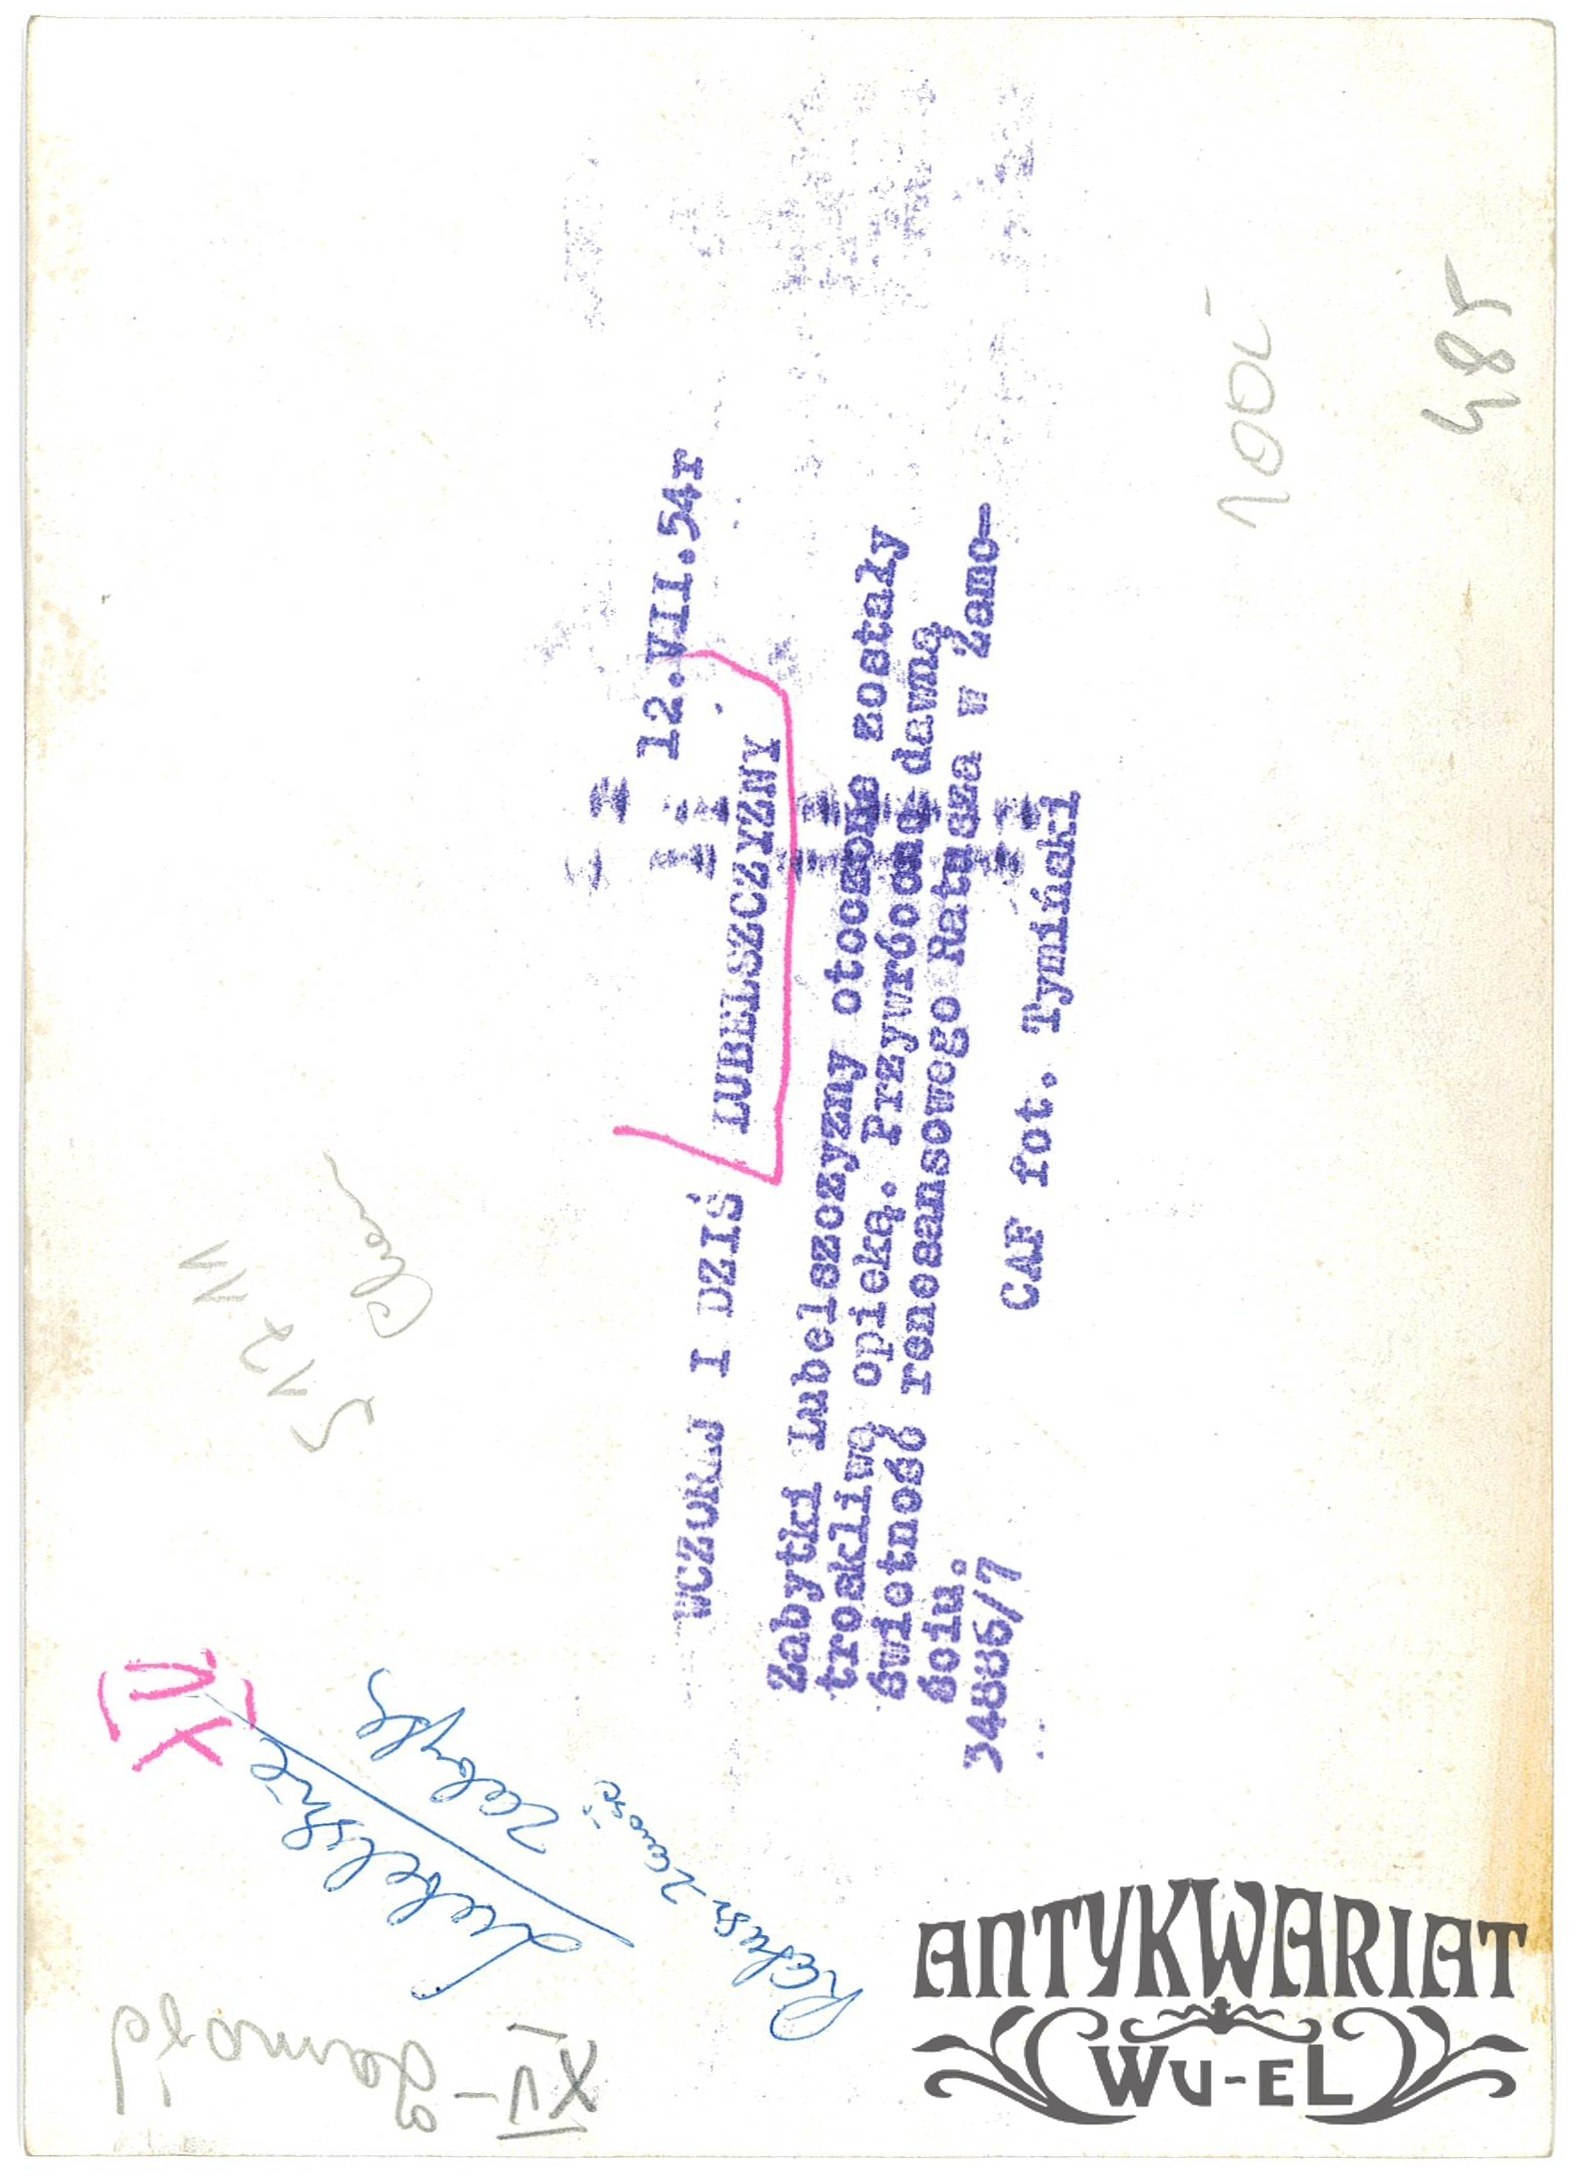 12.VII.54r
WCZORAJ I DZIŚ LUBELSZCZYZNY
Zabytki Lubelszczyzny otoczone zostały
troskliwą opieką. Przywrócono dawną
świetność renesansowego Ratusza w Zamo-
ściu.
34886/7
CAF fot. Tymiński
100,-
485
XI
Lubelskie
Zabytki
Ratusz Zamość
XV-
Zamość
ANTYKWARIAT
WU-EL